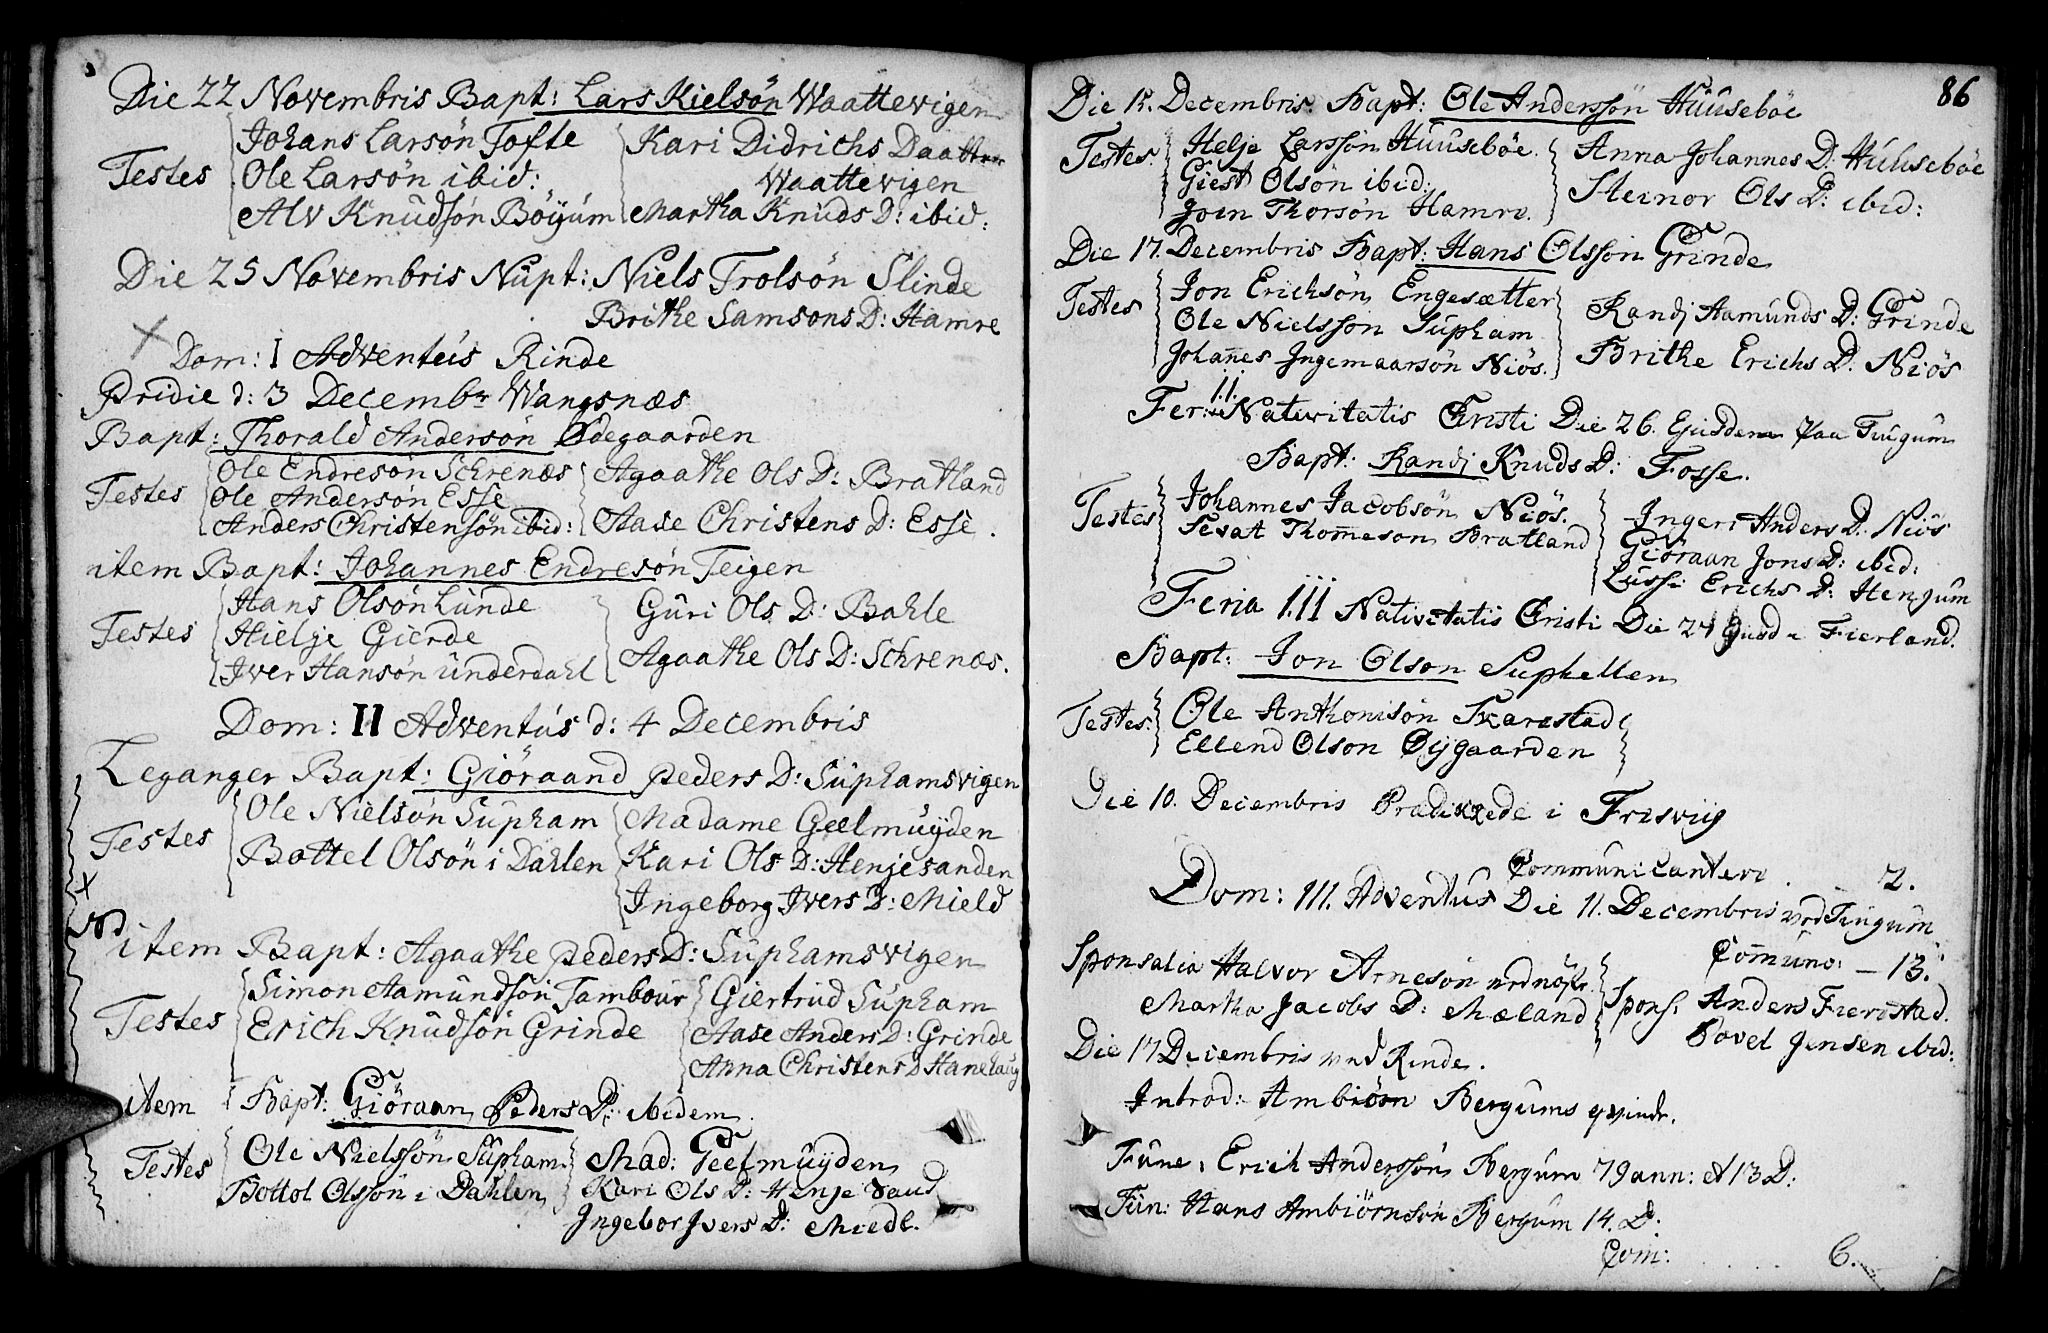 Die 22 Novembris Bapt: Lars Kielsön Waattevigen
Testes
Johans Larsön Tofte
Ole Larsön ibid:
Alv Knudsön Böyum
Kari Didrichs Daatter
Waattevigen
Martha Knuds D: ibid:
Die 25 Novembris Nupt: Niels Trolsön Slinde
Brithe Samsons D: Hamre
Dom: I Adventús Rinde
Pridie d: 3 Decembr Wangsnæs
Bapt: Thorald Andersön Ødegaarden
Testes
Ole Endresön Schrenæs
Ole Andersön Esse
Anders Christensön ibid:
Agaathe Ols D: Bratland
Aase Christens D: Esse.
item Bapt: Johannes Endresön Teigen
Testes
Hans Olsön Lunde
Hielje Gierde
Iver Hansön Underdahl
Guri Ols D: Bahle
Agaathe Ols D: Schrenæs.
Dom: II Adventús d: 4 Decembris
Leganger Bapt: Giöraand Peders D: Suphamsvigen
Testes
Ole Nielsön Supham
Bottel Olsön i Dahlen
Madame Geelmuÿden
Kari Ols D: Henjesanden
Ingeborg Ivers D: Mield
item Bapt: Agaathe Peders D: Suphamsvigen
Testes
Simon Aamundsön Tambour
Erich Knudsön Grinde
Giertrud Supham
Aase Anders D: Grinde
Anna Christens D Hanehaug
item Bapt: Giöraan Peders D: ibidem.
Testes
Ole Nielssön Supham
Bottol Olssön i Dahlen
Mad: Geelmuÿden
Kari Ols D: Henje Sand
Ingebor Ivers D: Miedl.
86
Die 15. Decembris Bapt: Ole Anderssön Huuseböe
Testes:
Helje Larssön Huuseböe.
Giest Olsön ibid:
Joen Thorsön Hamre.
Anna Johannes D: Huuseböe
Steinor Ols D: ibid:
Die 17. Decembris Bapt: Hans Olssön Grinde
Testes
Jon Erichsön Engesætter
Ole Nielssön Supham
Johañes Ingemaarsön Niös.
Randj Aamunds D: Grinde
Brithe Erichs D: Niös
Fer: II Nativitatis Christi Die 26. Ejusdem paa Tiugum
Bapt: Randj Knuds D: Fosse.
Testes
Johannes Jacobsön Niös.
Sevat Thom̄eson Bratland
Ingeri Anders D. Niös
Giöraan Jons D: ibid:
Lussi Erichs D: Hengum
Feria III Nativitatis Christi Die 27 Fierland.
Bapt: Jon Olson Suphellen
Testes:
Ole Anthonisön Skarestad
Ellend Olson Øygaarden
Die 10. Decembris Prædikkede i Frisviig
Communicantere . 2.
Dom: III. Adventus Die 11. Decembris ved Tiugum
Com̄uno: – 13.
Sponsalia Halvor Arnesön
Martha Jacobs D: Mæland
Spons: Anders Fierestad.
Povel Jensen ibid:
Die 17 Decembris ved Rinde.
Introd: Ambiörn Bergums qvinde.
Fune: Erich Anderssön Bergum 79 ann: et 13 D:
Fun: Hans Ambiörnsön Bergum 14. D:
Com: . . . . . 6.